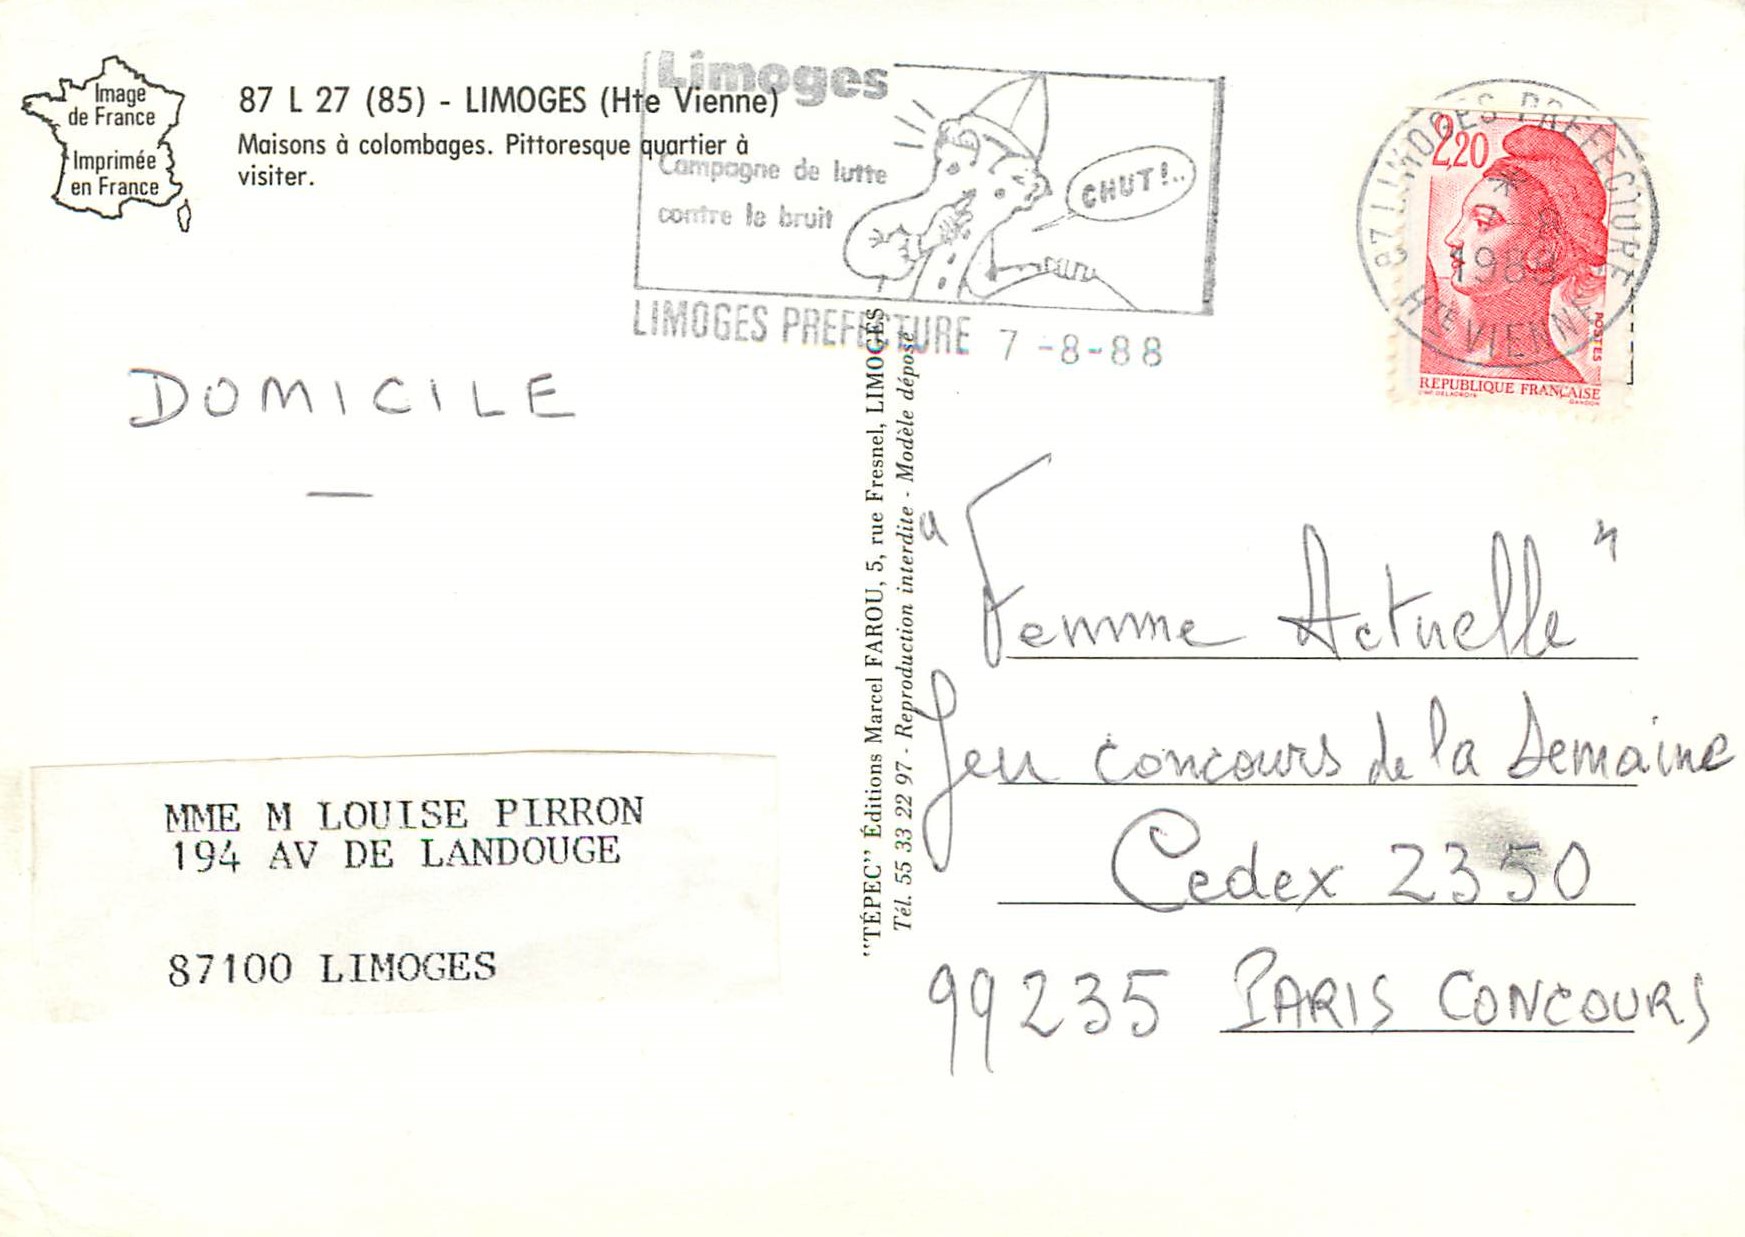 Image
de France
Imprimée
en France
87 L 27 (85) - LIMOGES (Hte Vienne)
Maisons à colombages. Pittoresque quartier à
visiter.
Limoges
Campagne de lutte
contre le bruit
CHUT!..
LIMOGES PREFECTURE 7-8-88
87 LIMOGES PREFECTURE
*
7-8
1988
Hte VIENNE
2,20
POSTES
REPUBLIQUE FRANÇAISE
D'AP. DELACROIX
GANDON
DOMICILE
—
MME M LOUISE PIRRON
194 AV DE LANDOUGE
87100 LIMOGES
"TÉPEC" Éditions Marcel FAROU, 5, rue Fresnel, LIMOGES
Tél. 55 33 22 97 - Reproduction interdite - Modèle déposé
"Femme Actuelle"
Jeu concours de la Semaine
Cedex 2350
99235 PARIS CONCOURS